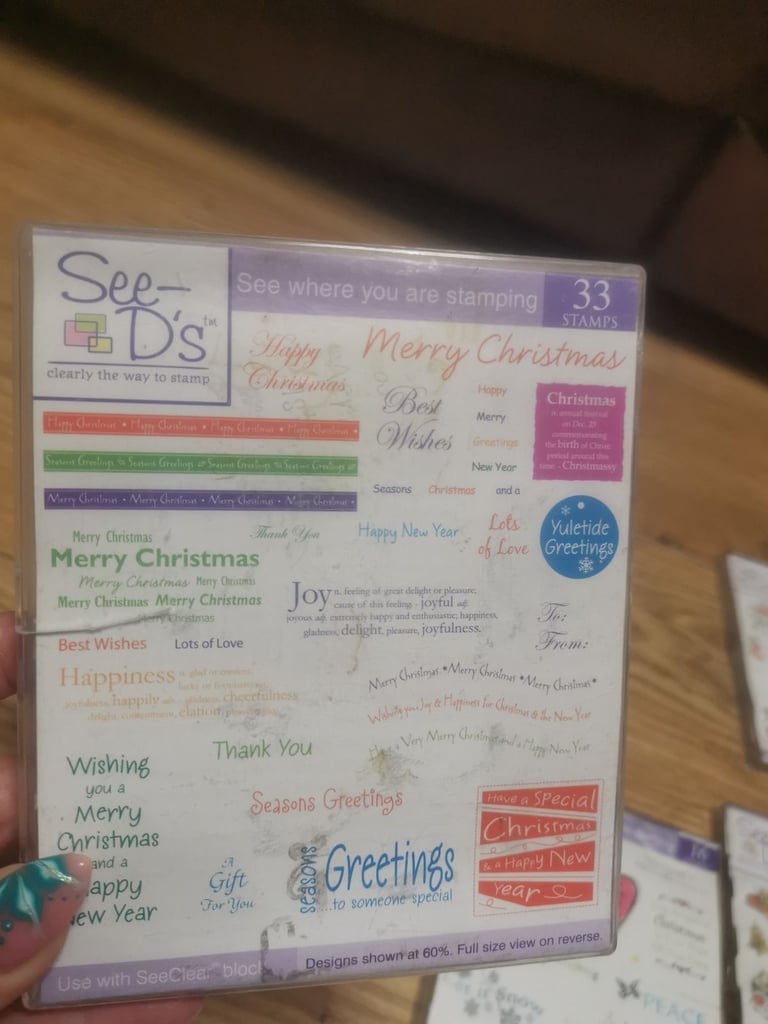 See-D's™
clearly the way to stamp
See where you are stamping
33
STAMPS
Happy
Christmas
Merry Christmas
Best
Wishes
Happy
Merry
Greetings
New Year
Seasons Christmas and a
Christmas
n. annual festival
on Dec. 25
commemorating
the birth of Christ;
period around this
time. - Christmassy
Happy Christmas • Happy Christmas • Happy Christmas • Happy Christmas •
Seasons Greetings Seasons Greetings Seasons Greetings Seasons Greetings
Merry Christmas • Merry Christmas • Merry Christmas • Merry Christmas •
Merry Christmas
Thank You
Happy New Year
Lots
of Love
Yuletide
Greetings
Merry Christmas
Merry Christmas Merry Christmas
Merry Christmas Merry Christmas
Merry Christmas
Best Wishes Lots of Love
Joy n. feeling of great delight or pleasure;
cause of this feeling. - joyful adj.
joyous adj. extremely happy and enthusiastic; happiness,
gladness, delight, pleasure, joyfulness.
To:
From:
Happiness
joyfulness, happily adv. gladness, cheerfulness
delight, contentment, elation,
Merry Christmas * Merry Christmas * Merry Christmas *
Wishing you Joy & Happiness for Christmas & the New Year
Have a Very Merry Christmas and a Happy New Year
Thank You
Wishing
you a
Merry
Christmas
and a
Happy
New Year
Seasons Greetings
A
Gift
For You
seasons
Greetings
...to someone special
Have a Special
Christmas
& a Happy New
Year
Use with SeeClear™ block
Designs shown at 60%. Full size view on reverse.
16
Christmas
let it Snow
PEACE